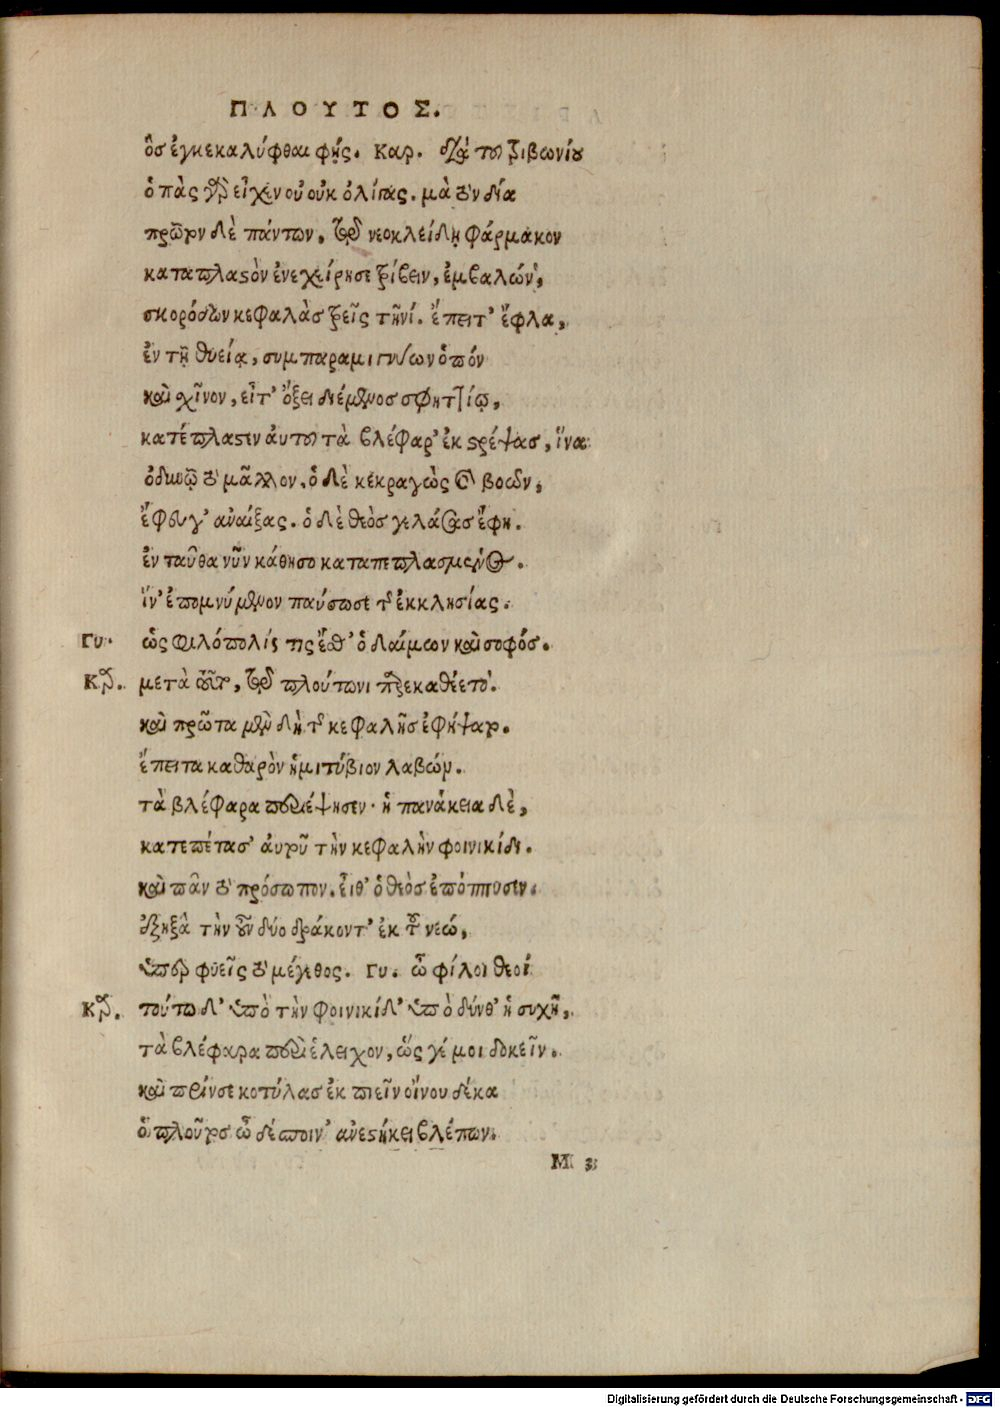 ΠΛΟΥΤΟΣ.
ὃσ ἐγκεκαλύφθαι φής. Καρ. διὰ τοῦ τριβωνίου
ὀπὰς γὰρ εἶχεν οὐκ ὀλίγας. μὰ τὸν δία
πρῶτον δὲ πάντων, τῷ νεοκλείδῃ φάρμακον
καταπλαστὸν ἐνεχείρησε τρίβειν, ἐμβαλών,
σκορόδων κεφαλὰσ τρεῖς τηνί. ἔπειτ' ἔφλα,
ἐν τῇ θυείᾳ, συμπαραμιγνύων ὀπόν
καὶ χῖνον, εἶτ' ὄξει διέμενοσ σφηττίῳ,
κατέπλασεν ἀυτοῦ τὰ βλέφαρ' ἐκστρέψασ, ἵνα
ὀδυνῷτο μᾶλλον. ὁ δὲ κεκραγὼς καὶ βοῶν,
ἔφευγ' αναΐξας. ὁ δὲ θεὸσ γελάσασ ἔφη.
ἐνταῦθα νῦν κάθησο καταπεπλασμένος.
ἵν' ἐπομνύμενον παύσωσε τῆς ἐκκλησίας.
Γυ. ὡς φιλόπολίς τις ἔσθ' ὁ δαίμων καὶ σοφόσ.
Κρ. μετὰ τοῦτο, τῷ πλούτωνι παρεκαθέετο.
καὶ πρῶτα μὲν δὴ τῆς κεφαλῆσ ἐφήψατο.
ἔπειτα καθαρὸν ἡμιτύβιον λαβών.
τὰ βλέφαρα περιέψησεν. ἡ πανάκεια δὲ,
κατεπέτασ' ἀυτοῦ τὴν κεφαλὴν φοινικίδι.
καὶ πᾶν τὸ πρόσωπον. εἶθ' ὁ θεὸσ ἐπόππυσεν.
ἐξῃξάτην οὖν δύο δράκοντ' ἐκ τοῦ νεώ,
ὑπερφυεῖς τὸ μέγεθος. Γυ. ὦ φίλοι θεοί
Κρ. τούτω δ' ὑπὸ τὴν φοινικίδ' ὑποδύνθ' ἡσυχῆ,
τὰ βλέφαρα περιέλειχον, ὥς γέ μοι δοκεῖν.
καὶ πρίν σε κοτύλασ ἐκπιεῖν οἴνου δέκα
ὁ πλοῦτοσ ὦ δέσποιν' ανεστήκει βλέπων.
M 3
Digitalisierung gefördert durch die Deutsche Forschungsgemeinschaft - DFG